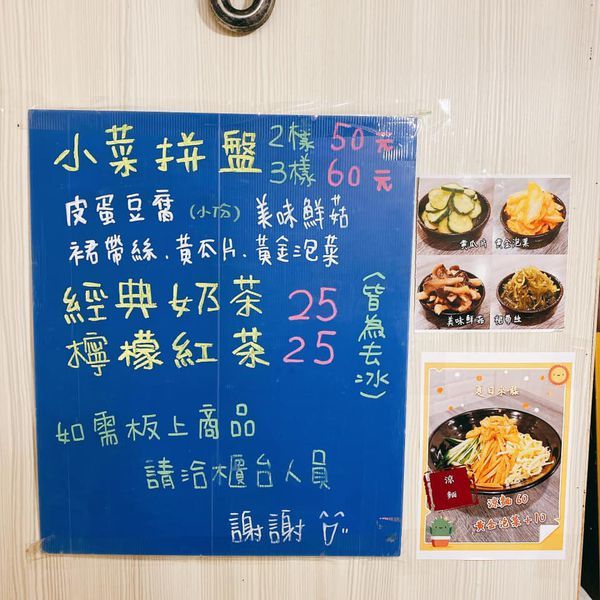 小菜拼盤 2樣 50元
3樣 60元
皮蛋豆腐 (小份) 美味鮮菇
裙帶絲、黃瓜片、黃金泡菜
經典奶茶 25
檸檬紅茶 25
(皆為去冰)
如需板上商品
請洽櫃台人員
謝謝
黃瓜片 黃金泡菜
美味鮮菇 裙帶絲
夏日冰涼
涼麵
涼麵 60
黃金泡菜+10